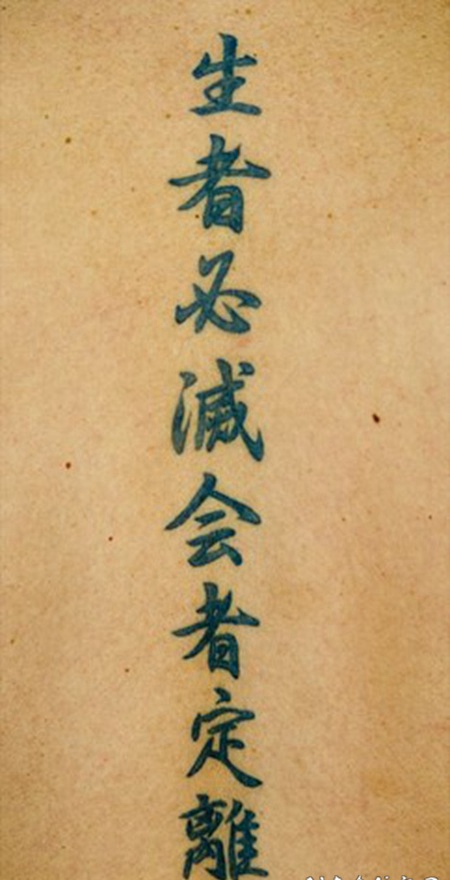 生者必滅会者定離